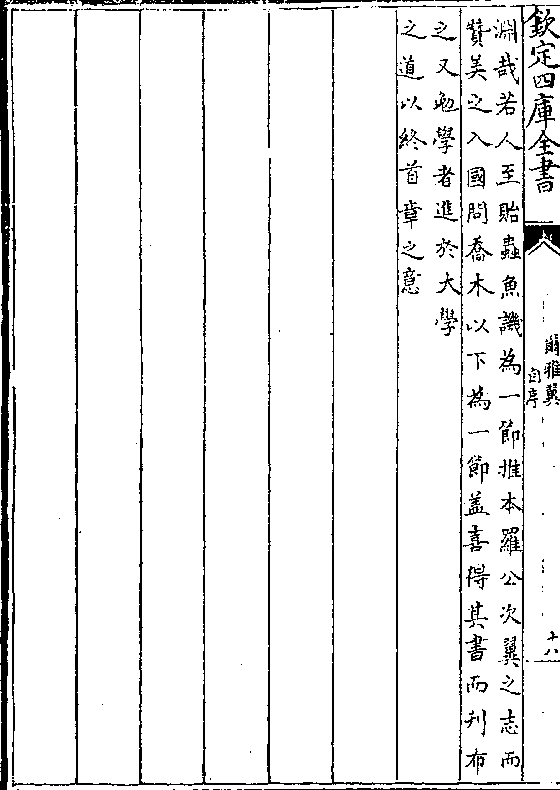 欽定四庫全書
爾雅翼
自序
十八
淵哉若人至貽蟲魚譏為一節推本羅公次翼之志而
贊美之入國問喬木以下為一節蓋喜得其書而刋布
之又勉學者進於大學
之道以終首章之意